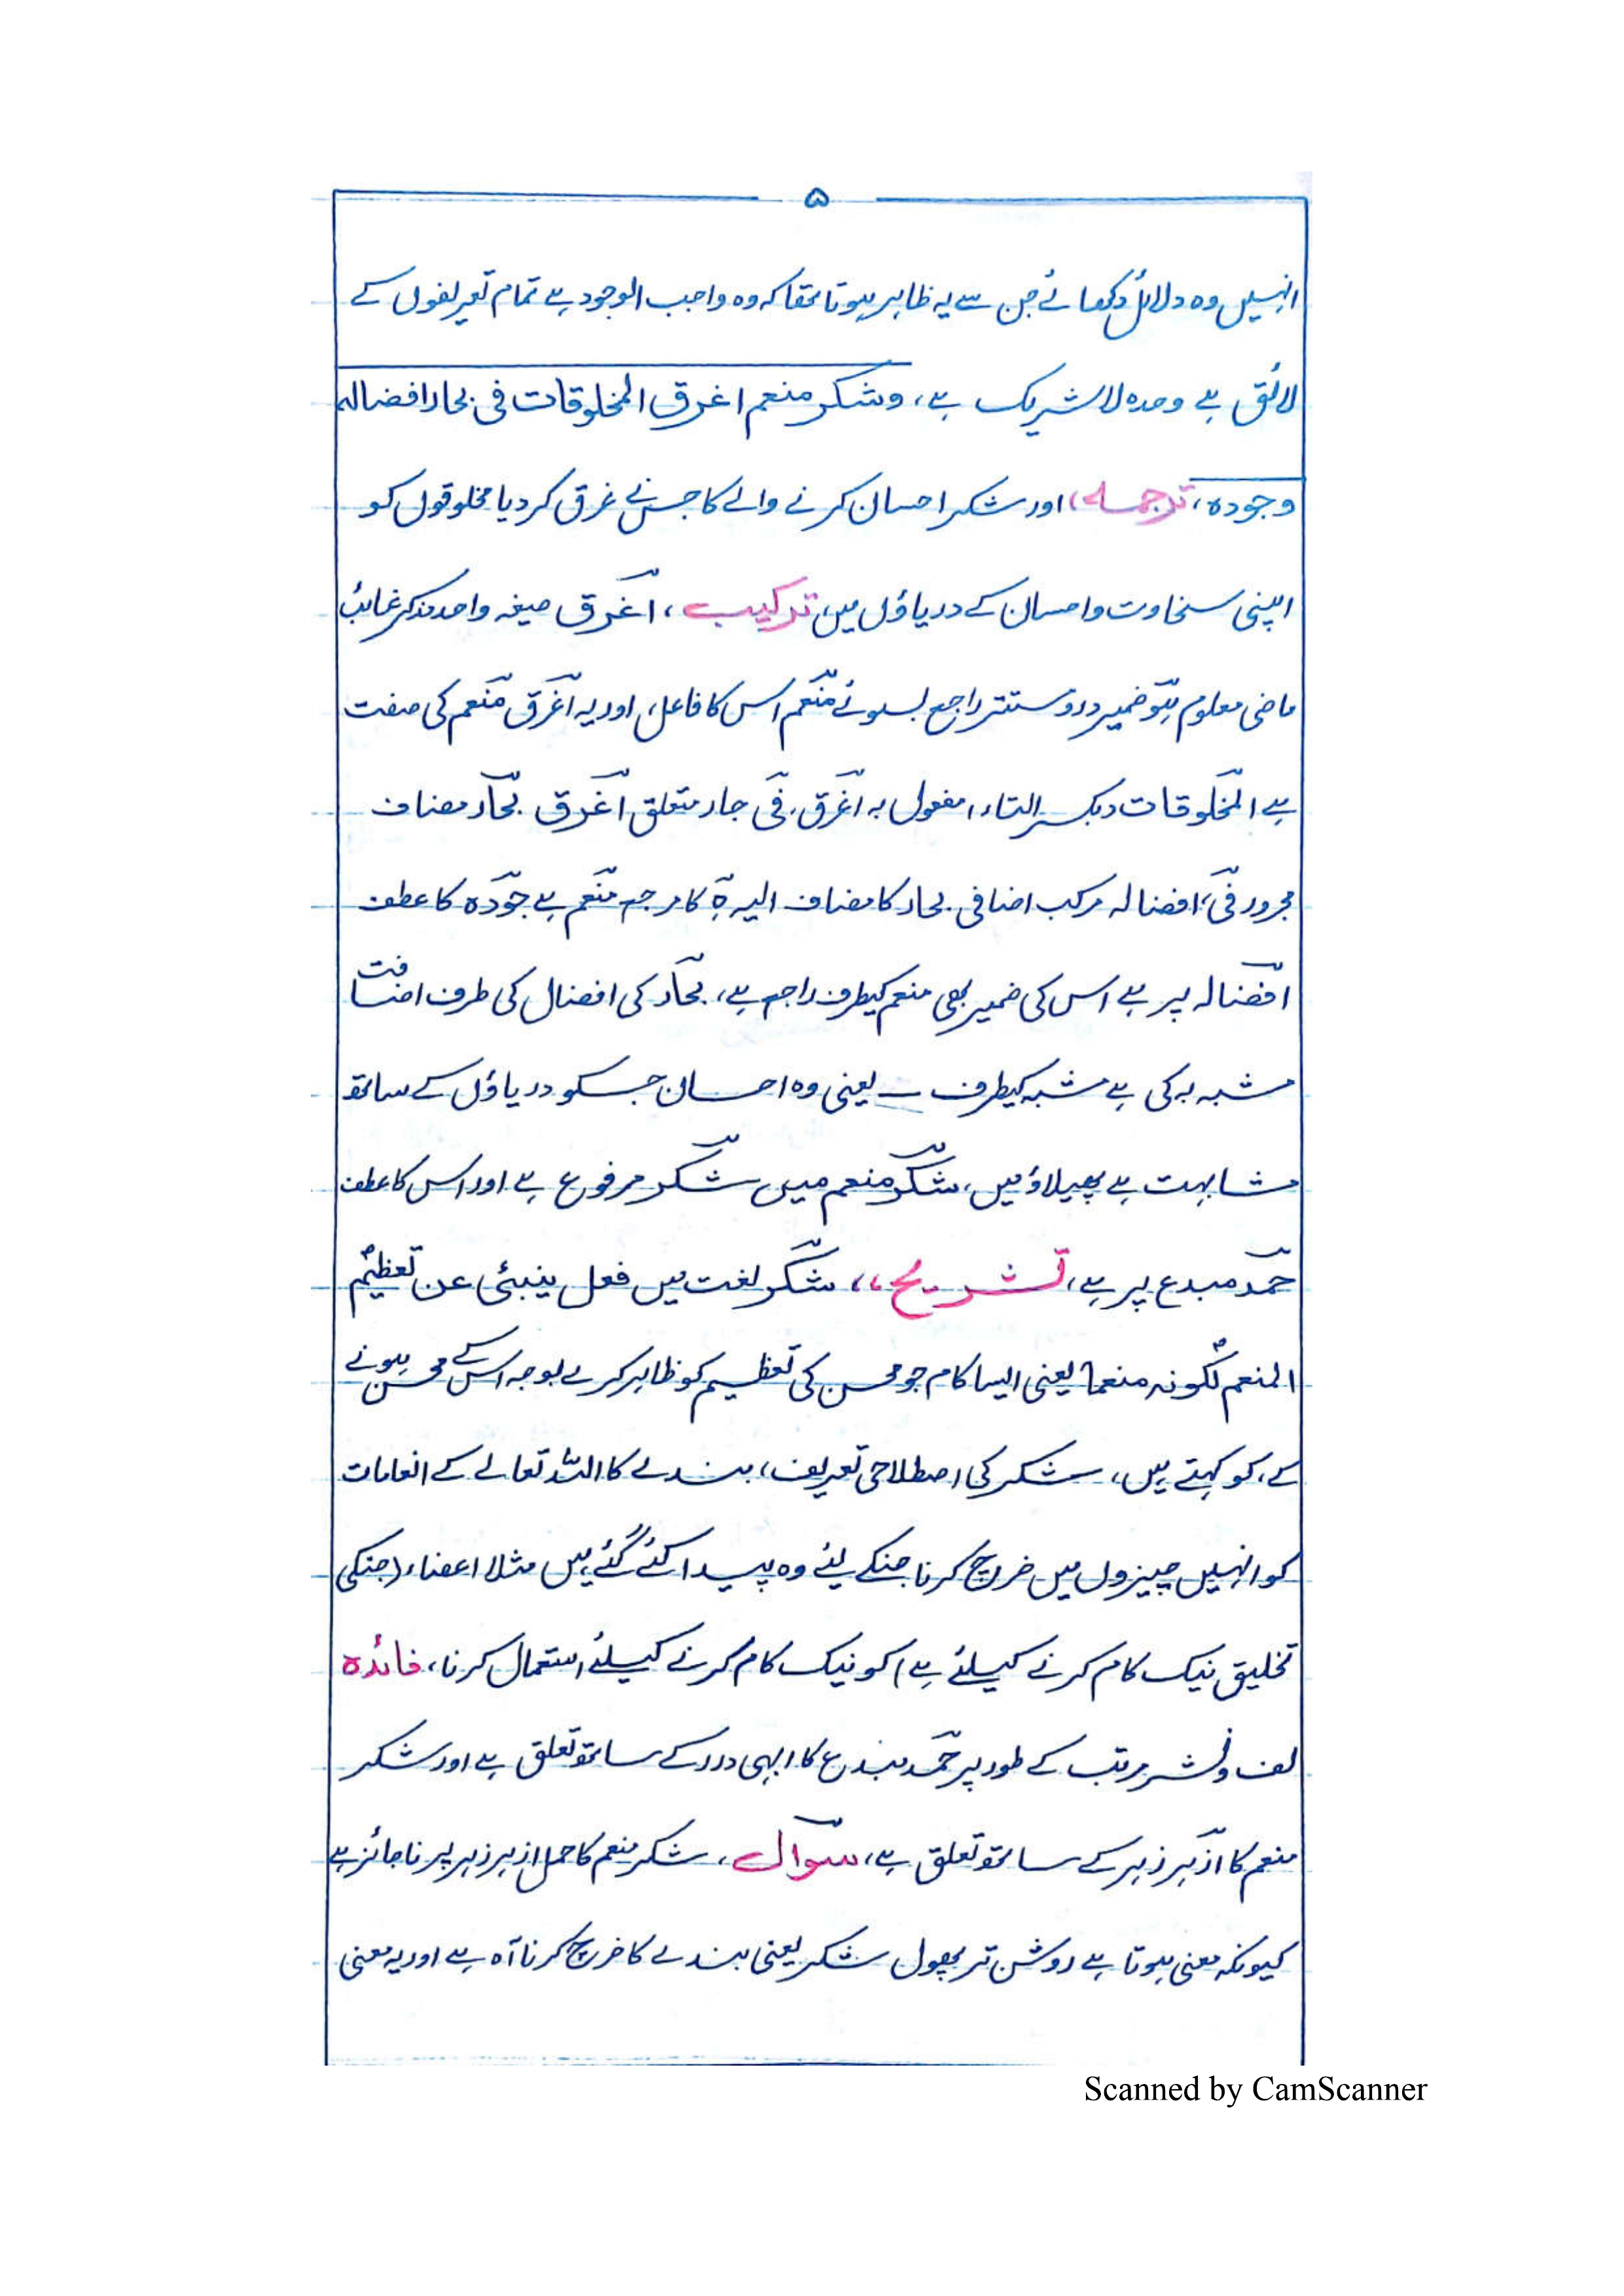 ۵
انہیں وہ دلائل دکھائے جن سے یہ ظاہر ہوتا تھا کہ وہ واجب الوجود ہے تمام تعریفوں کے
لائق ہے وحدہ لاشریک ہے، وشکر منعم اغرق المخلوقات فی بحار افضالہ
وجودہ، ترجمہ، اور شکر احسان کرنے والے کا جس نے غرق کردیا مخلوقوں کو
اپنی سخاوت واحسان کے دریاؤں میں ترکیب، اغرق صیغہ واحد مذکر غائب
ماضی معلوم ہو ضمیر درو مستتر راجع بسوئے منعم اس کا فاعل، اور یہ اغرق منعم کی صفت
ہے المخلوقات (بکسر التاء) مفعول بہ اغرق، فی جار متعلق اغرق بحار مضاف
مجرور فی، افضالہ مرکب اضافی بحار کا مضاف الیہ ہ کا مرجع منعم ہے جودہ کا عطف
افضالہ پر ہے اس کی ضمیر بھی منعم کیطرف راجع ہے، بحار کی افضال کی طرف اضافت
مشبہ بہ کی ہے مشبہ کیطرف – یعنی وہ احسان جسکو دریاؤں کے ساتھ
مشابہت ہے پھیلاؤ میں، شکر منعم میں شکر مرفوع ہے اور اس کا عطف
حمد مبدع پر ہے، تشریح،، شکر لغت میں فعل ینبئ عن تعظیم
المنعم لکونہ منعما یعنی ایسا کام جو محسن کی تعظیم کو ظاہر کرے بوجہ اس کے محسن ہونے
کے، کو کہتے ہیں، شکر کی اصطلاحی تعریف، بندے کا اللہ تعالے کے انعامات
کو انہیں چیزوں میں خرچ کرنا جنکے لیئے وہ پیدا کئے گئے ہیں مثلا اعضاء (جنکی
تخلیق نیک کام کرنے کیلئے ہے) کو نیک کام کرنے کیلئے استعمال کرنا، فائدہ
لف ونشر مرتب کے طور پر حمد مبدع کا ابہی درر کے ساتھ تعلق ہے اور شکر
منعم کا ازہر زہر کے ساتھ تعلق ہے، سوال، شکر منعم کا حمل ازہر زہر پر ناجائز ہے
کیونکہ معنی ہوتا ہے روشن تر پھول شکر یعنی بندے کا خرچ کرنا آہ ہے اور یہ معنی
Scanned by CamScanner